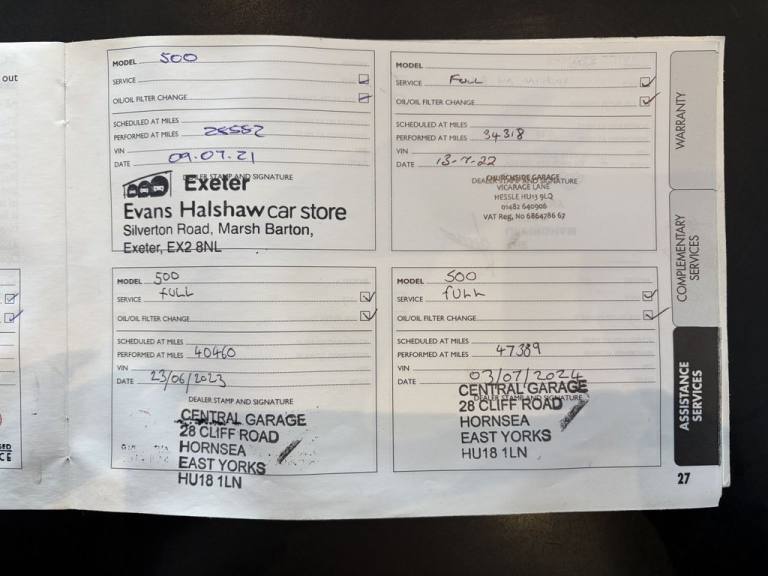 out
MODEL 500
SERVICE
OIL/OIL FILTER CHANGE
SCHEDULED AT MILES
PERFORMED AT MILES 28552
VIN
DATE 09.07.21
DEALER STAMP AND SIGNATURE
Exeter
Evans Halshaw car store
Silverton Road, Marsh Barton,
Exeter, EX2 8NL
MODEL
SERVICE FULL
OIL/OIL FILTER CHANGE
SCHEDULED AT MILES
PERFORMED AT MILES 34318
VIN
DATE 13-7-22
DEALER STAMP AND SIGNATURE
CHURCHSIDE GARAGE
VICARAGE LANE
HESSLE HU13 9LQ
01482 640906
VAT Reg, No 6864786 67
MODEL 500
SERVICE FULL
OIL/OIL FILTER CHANGE
SCHEDULED AT MILES
PERFORMED AT MILES 40460
VIN
DATE 23/06/2023
DEALER STAMP AND SIGNATURE
CENTRAL GARAGE
28 CLIFF ROAD
HORNSEA
EAST YORKS
HU18 1LN
MODEL 500
SERVICE FULL
OIL/OIL FILTER CHANGE
SCHEDULED AT MILES
PERFORMED AT MILES 47389
VIN
DATE 03/07/2024
DEALER STAMP AND SIGNATURE
CENTRAL GARAGE
28 CLIFF ROAD
HORNSEA
EAST YORKS
HU18 1LN
WARRANTY
COMPLEMENTARY
SERVICES
ASSISTANCE
SERVICES
27